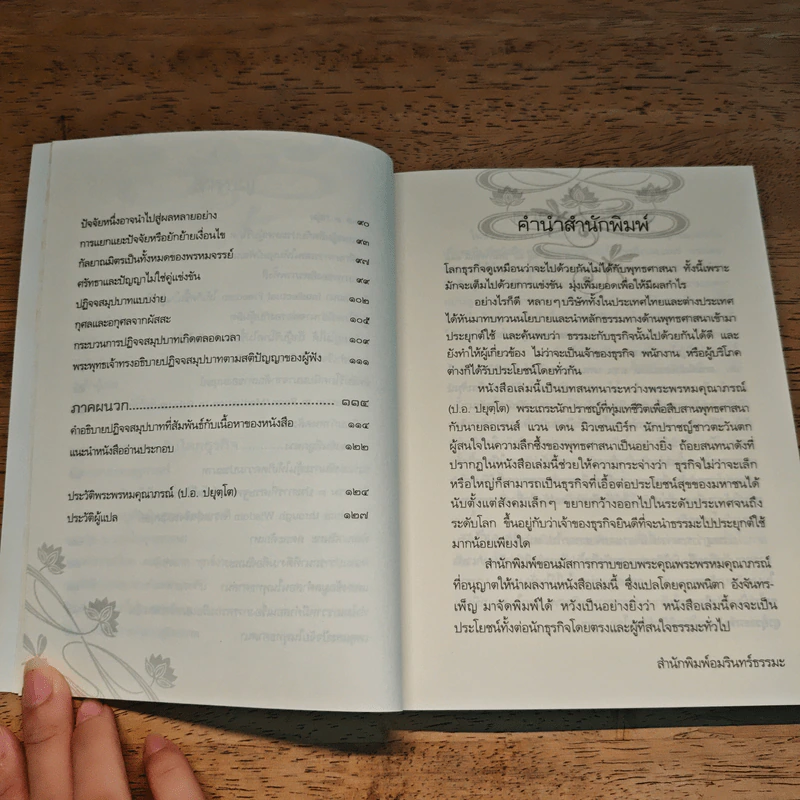 ปัจจัยหนึ่งอาจนำไปสู่ผลหลายอย่าง ๙๐
การแยกแยะปัจจัยหรือยักย้ายเงื่อนไข ๙๓
กัลยาณมิตรเป็นทั้งหมดของพรหมจรรย์ ๙๗
ศรัทธาและปัญญาไม่ใช่คู่แข่งขัน ๙๙
ปฏิจจสมุปบาทแบบง่าย ๑๐๒
กุศลและอกุศลจากผัสสะ ๑๐๕
กระบวนการปฏิจจสมุปบาทเกิดตลอดเวลา ๑๐๙
พระพุทธเจ้าทรงอธิบายปฏิจจสมุปบาทตามสติปัญญาของผู้ฟัง ๑๑๑
ภาคผนวก.................................................. ๑๑๔
คำอธิบายปฏิจจสมุปบาทที่สัมพันธ์กับเนื้อหาของหนังสือ ๑๑๔
แนะนำหนังสืออ่านประกอบ ๑๒๒
ประวัติพระพรหมคุณาภรณ์ (ป.อ. ปยุตฺโต) ๑๒๔
ประวัติผู้แปล ๑๒๗
คำนำสำนักพิมพ์
โลกธุรกิจดูเหมือนว่าจะไปด้วยกันไม่ได้กับพุทธศาสนา ทั้งนี้เพราะ
มักจะเต็มไปด้วยการแข่งขัน มุ่งเพิ่มยอดเพื่อให้มีผลกำไร
อย่างไรก็ดี หลายๆ บริษัททั้งในประเทศไทยและต่างประเทศ
ได้หันมาทบทวนนโยบายและนำหลักธรรมทางด้านพุทธศาสนาเข้ามา
ประยุกต์ใช้ และค้นพบว่า ธรรมะกับธุรกิจนั้นไปด้วยกันได้ดี และ
ยังทำให้ผู้เกี่ยวข้อง ไม่ว่าจะเป็นเจ้าของธุรกิจ พนักงาน หรือผู้บริโภค
ต่างก็ได้รับประโยชน์โดยทั่วกัน
หนังสือเล่มนี้เป็นบทสนทนาระหว่างพระพรหมคุณาภรณ์
(ป.อ. ปยุตฺโต) พระเถระนักปราชญ์ที่ทุ่มเทชีวิตเพื่อสืบสานพุทธศาสนา
กับนายลอเรนส์ แวน เดน มิวเซนเบิร์ก นักปราชญ์ชาวตะวันตก
ผู้สนใจในความลึกซึ้งของพุทธศาสนาเป็นอย่างยิ่ง ถ้อยสนทนาดังที่
ปรากฏในหนังสือเล่มนี้ช่วยให้ความกระจ่างว่า ธุรกิจไม่ว่าจะเล็ก
หรือใหญ่ก็สามารถเป็นธุรกิจที่เอื้อต่อประโยชน์สุขของมหาชนได้
นับตั้งแต่สังคมเล็กๆ ขยายกว้างออกไปในระดับประเทศจนถึง
ระดับโลก ขึ้นอยู่กับว่าเจ้าของธุรกิจยินดีที่จะนำธรรมะไปประยุกต์ใช้
มากน้อยเพียงใด
สำนักพิมพ์ขอนมัสการกราบขอบพระคุณพระพรหมคุณาภรณ์
ที่อนุญาตให้นำผลงานหนังสือเล่มนี้ ซึ่งแปลโดยคุณพนิตา อังจันทร-
เพ็ญ มาจัดพิมพ์ได้ หวังเป็นอย่างยิ่งว่า หนังสือเล่มนี้คงจะเป็น
ประโยชน์ทั้งต่อนักธุรกิจโดยตรงและผู้ที่สนใจธรรมะทั่วไป
สำนักพิมพ์อมรินทร์ธรรมะ